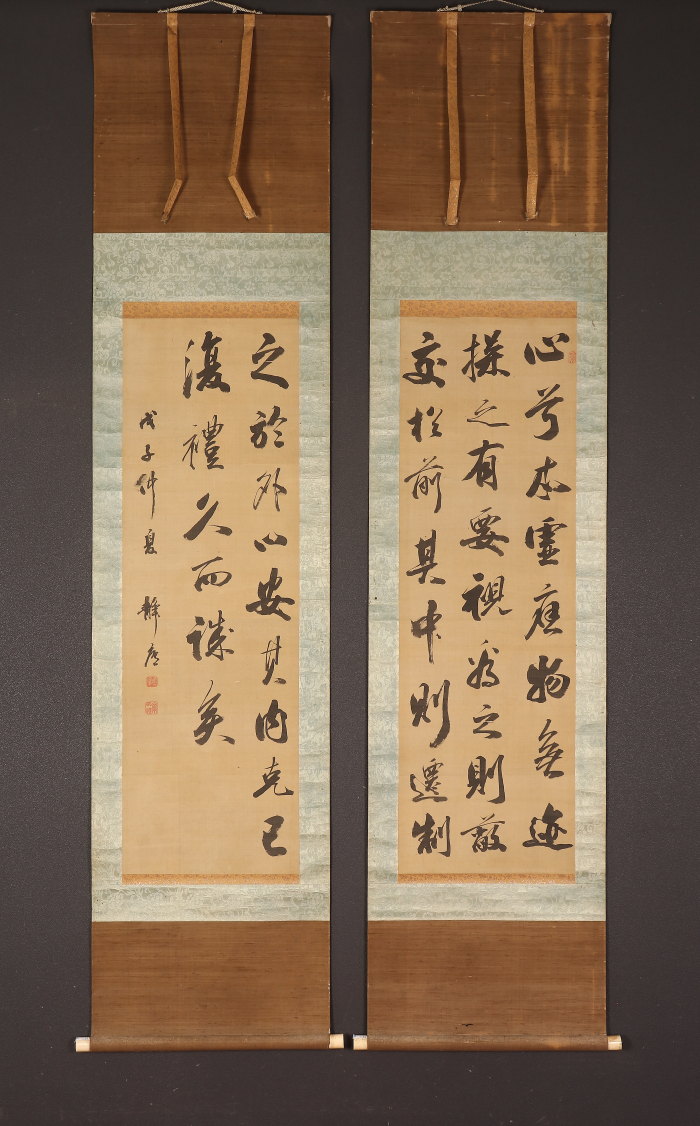 心兮本虛應物無迹
操之有要視為之則蔽
交於前其中則遷制
之於外以安其內克己
復禮久而誠矣
戊子仲夏 靜